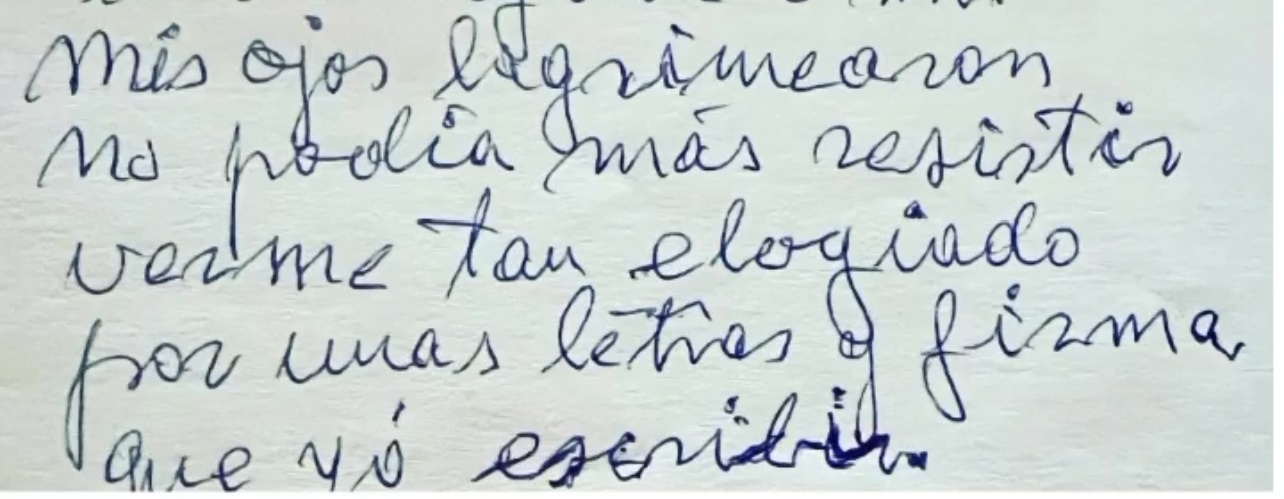 Mis ojos lágrimearon
no podía más resistir
verme tan elogiado
por unas letras y firma
que yó escribir.